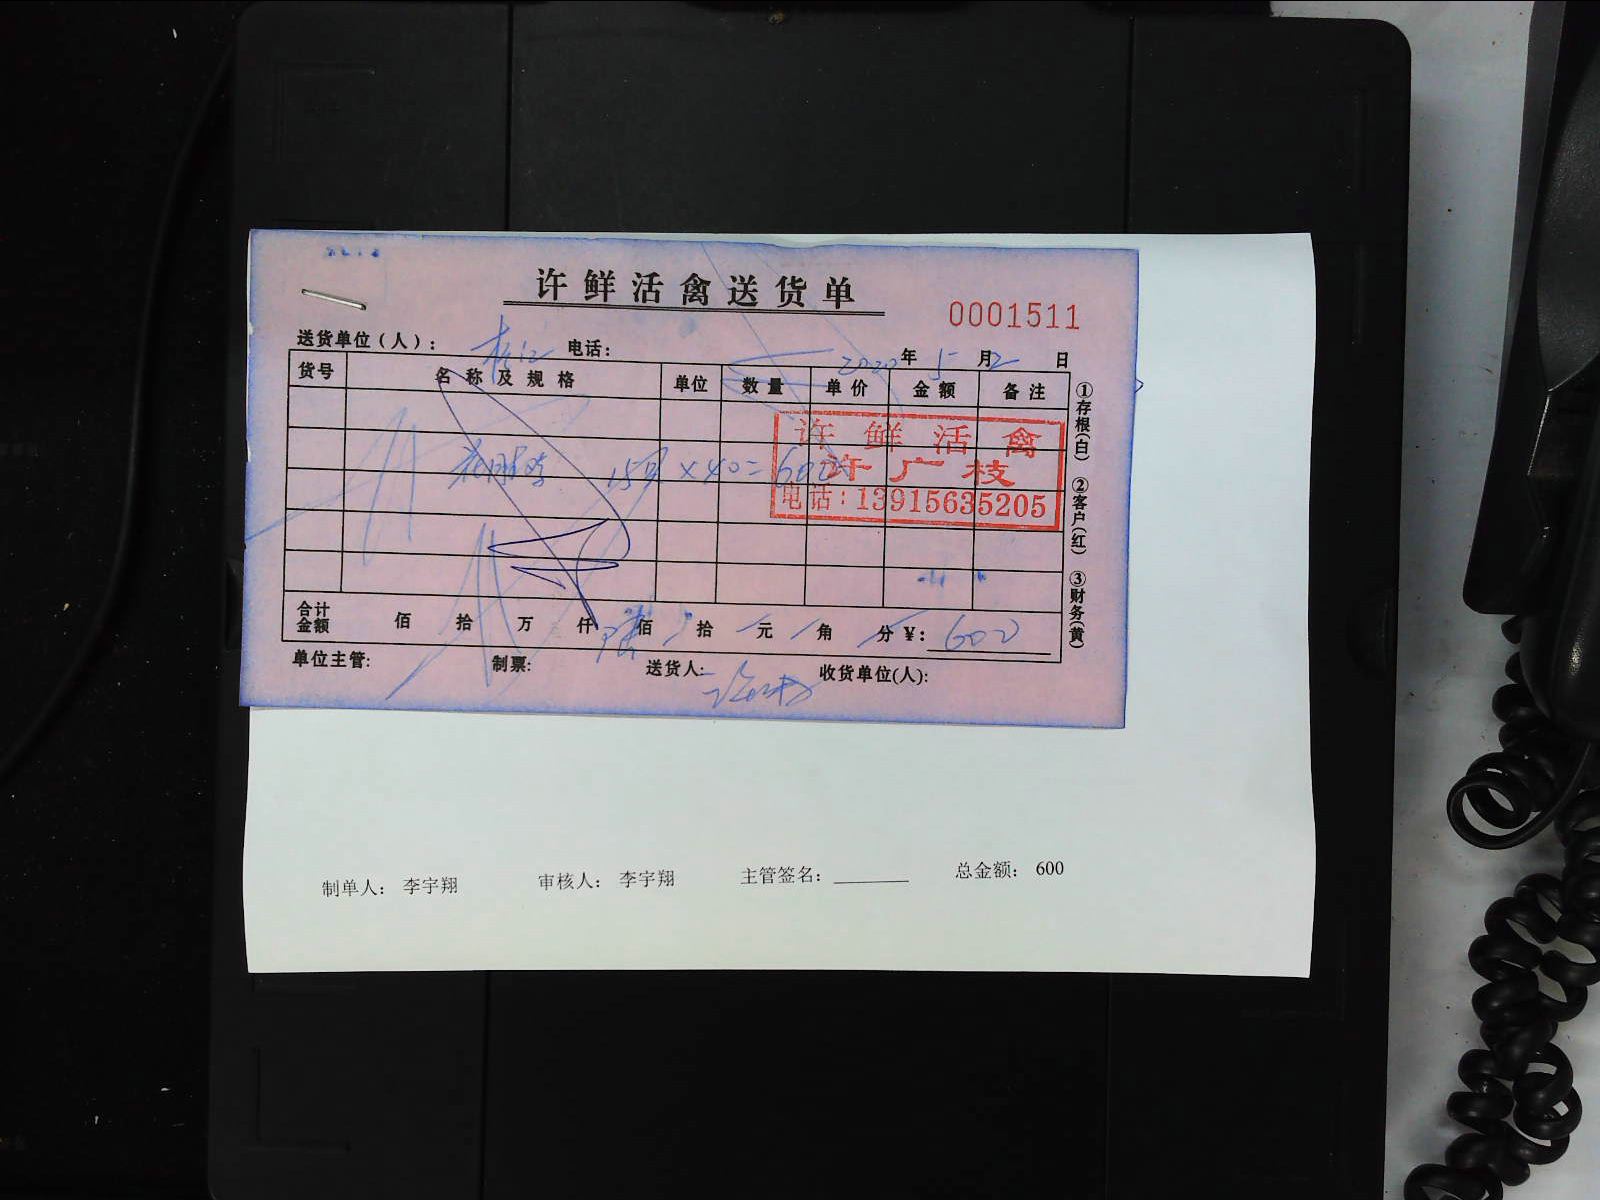 许鲜活禽送货单
0001511
送货单位（人）： 电话： 2020年5月2日
货号 名称及规格 单位 数量 单价 金额 备注
15只×40=600
许鲜活禽
许广枝
电话：13915635205
合计金额 佰 拾 万 仟 陆佰 拾 元 角 分 ¥：600
单位主管: 制票: 送货人: 收货单位(人):
①存根(白) ②客户(红) ③财务(黄)
制单人： 李宇翔 审核人： 李宇翔 主管签名： 总金额： 600